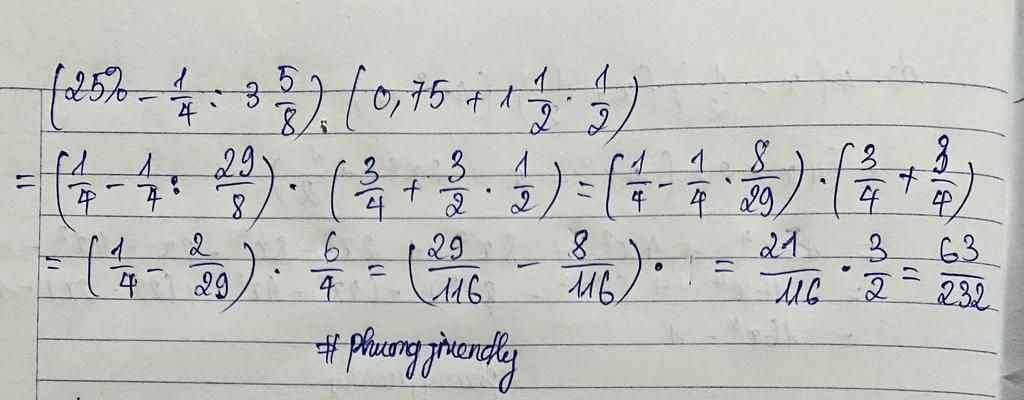 (25% - 1/4 : 3 5/8) . (0,75 + 1 1/2 . 1/2)
= (1/4 - 1/4 : 29/8) . (3/4 + 3/2 . 1/2) = (1/4 - 1/4 . 8/29) . (3/4 + 3/4)
= (1/4 - 2/29) . 6/4 = (29/116 - 8/116) . = 21/116 . 3/2 = 63/232
# phuongfriendly